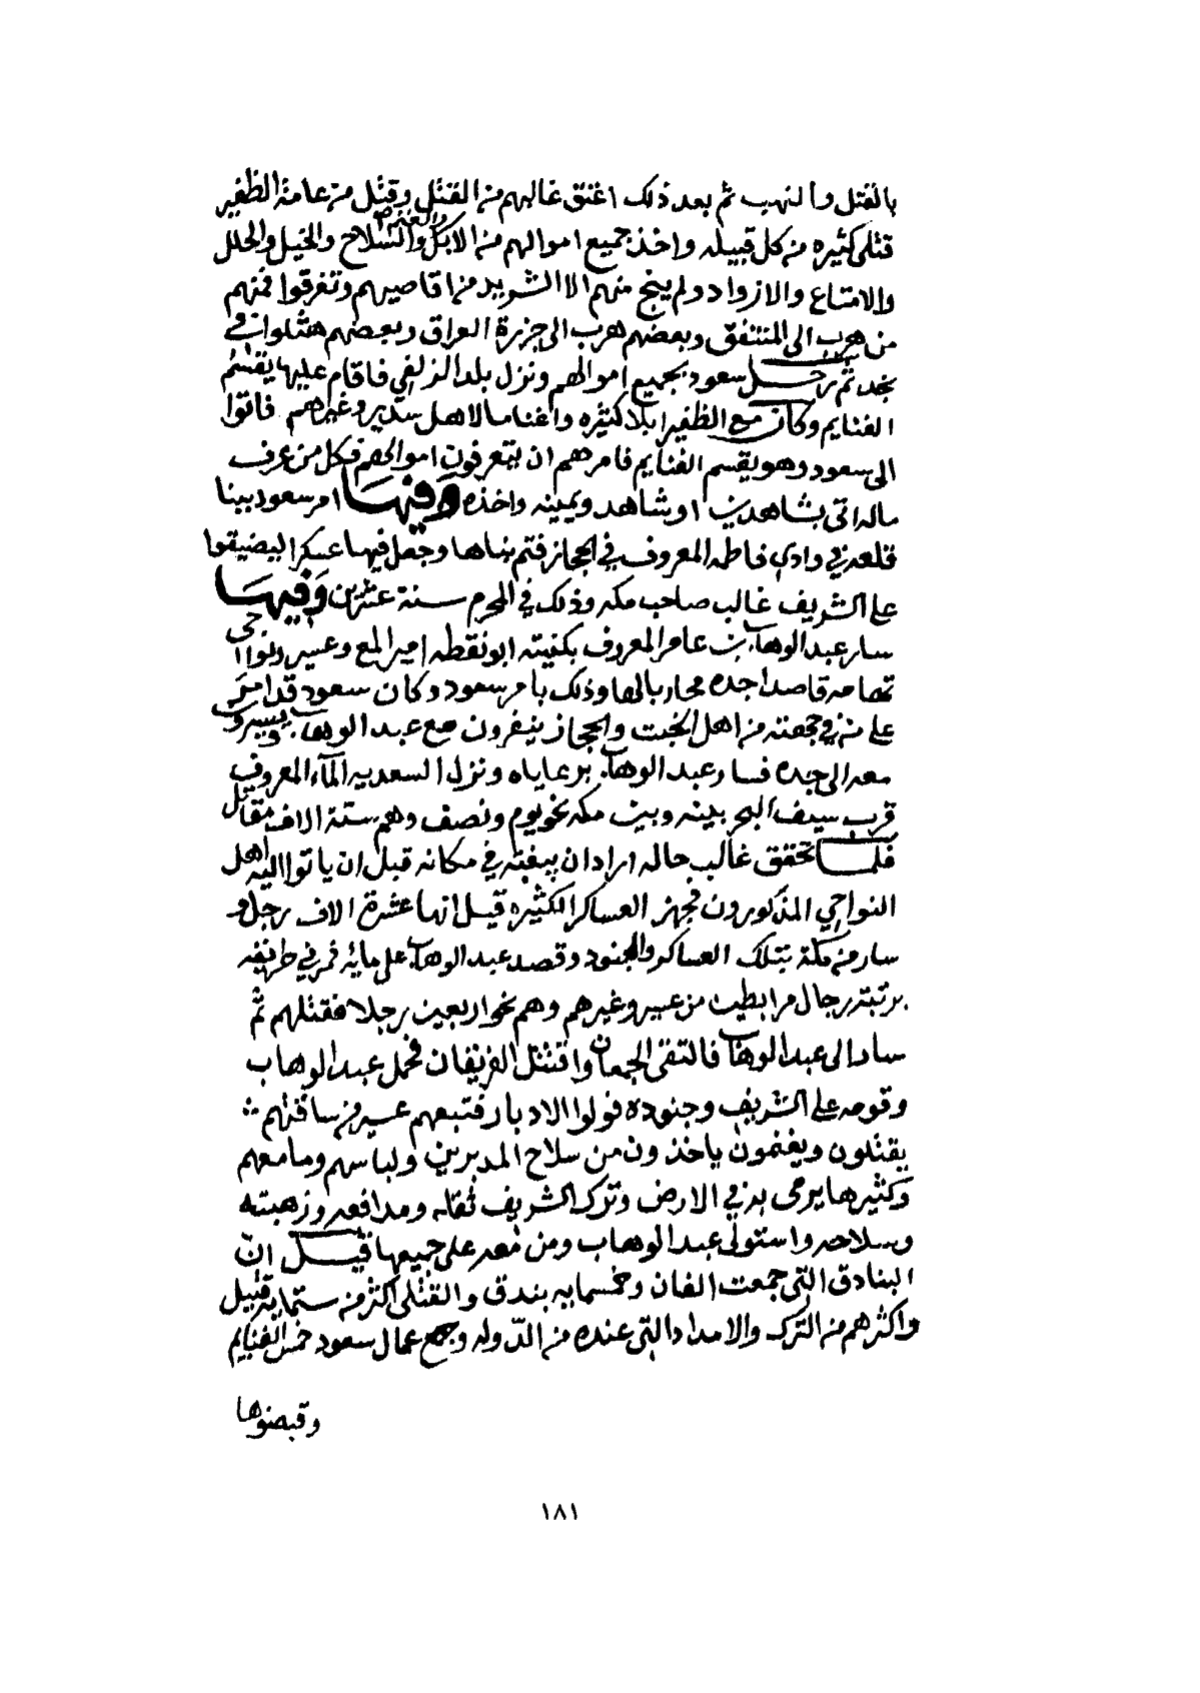 بالقتل والنهب ثم بعد ذلك اعتق غالبهم من القتل وقتل من عامة الظفير
قتلى كثيره من كل قبيله واخذ جميع اموالهم من الابل والغنم والسلاح والخيل والحلل
والامتاع والازواد ولم ينج منهم الا الشريد من اقاصيهم وتفرقوا فمنهم
من هرب الى المنتفق وبعضهم هرب الى جزيرة العراق وبعضهم هثلوا في
نجد ثم رحل سعود بجميع اموالهم ونزل بلد الزلفي فاقام عليها يقسم
الغنايم وكان مع الظفير ابلا كثيره واغناما لاهل سدير وغيرهم فاتوا
الى سعود وهو يقسم الغنايم فامرهم ان يتعرفون اموالهم فكل من عرف
ماله اتى بشاهدين او شاهد ويمينه واخذه وفيها امر سعود ببنا
قلعه في وادي فاطمه المعروف في الحجاز فتم بناها وجعل فيها عسكرا ليضيقوا
على الشريف غالب صاحب مكه وذلك في المحرم سنة عشرين وفيها
سار عبد الوهاب بن عامر المعروف بكنيته ابو نقطه امير المع وعسير ونواحي
تهامه قاصدا جده محاربا لها وذلك بامر سعود وكان سعود قد امر
على من في جهته من اهل الخبت والحجاز ينفرون مع عبد الوهاب ويسيرون
معه الى جده فسار عبد الوهاب برعاياه ونزل السعديه الماء المعروف
قرب سيف البحر بينه وبين مكه نحو يوم ونصف وهم ستة الاف مقاتل
فلما تحقق غالب حاله اراد ان يبغته في مكانه قبل ان ياتوا اليه اهل
النواحي المذكورون فجهز العساكر الكثيره قيل انها عشرة الاف رجل و
سار من مكة بتلك العساكر والجنود وقصد عبد الوهاب على مائه فمر في طريقه
برتبته رجال مرابطين من عسير وغيرهم وهم نحو اربعين رجلا فقتلهم ثم
سار الى عبد الوهاب فالتقى الجمعان واقتتل الفريقان فحمل عبد الوهاب
وقومه على الشريف وجنوده فولوا الادبار فتبعهم عسير من ساقتهم
يقتلون ويغنمون ياخذون من سلاح المدبرين ولباسهم وما معهم
وكثيرها يرمى به في الارض وترك الشريف ثقله ومدافعه وزهبته
وسلاحه واستولى عبد الوهاب ومن معه على جميعها قيل ان
البنادق التي جمعت الفان وخمسمايه بندق والقتلى اكثر من ستمايه قتيل
واكثرهم من الترك والامداد التي عنده من الدوله وجمع عمال سعود خمس الغنايم
وقبضوها
١٨١